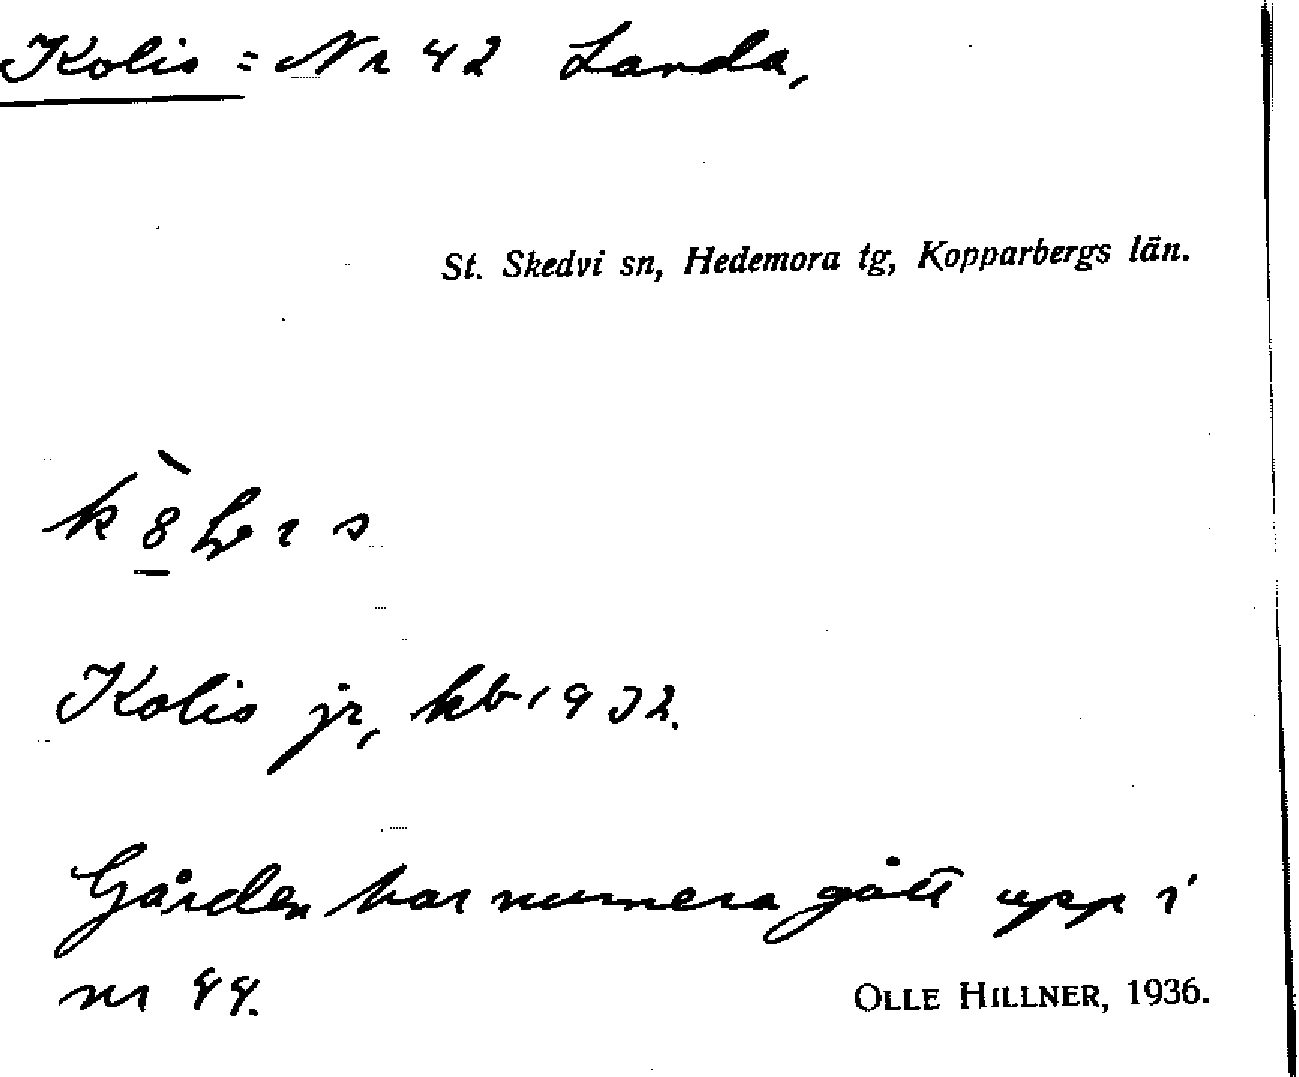 Kolis = Nr 42 Landa,
St. Skedvi sn, Hedemora tg, Kopparbergs län.
Kolis jr, kb 1932.
Gården har numera gått upp i
nr 44.
OLLE HILLNER, 1936.